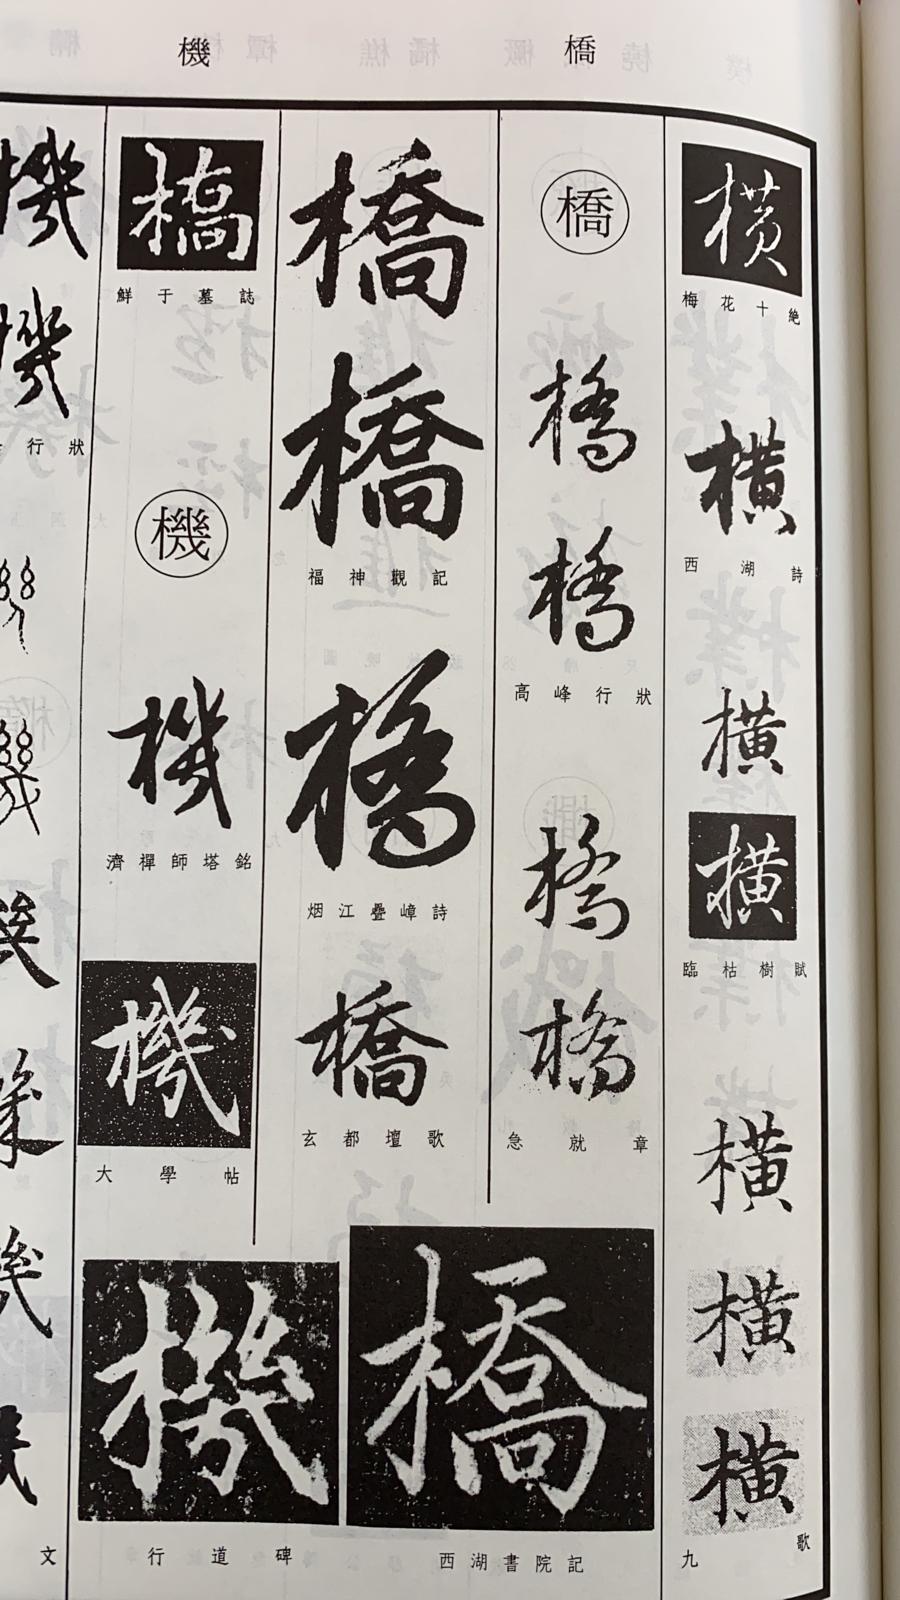 橋
機
橫
梅花十絶
橫
西湖詩
橫
橫
臨枯樹賦
橫
橫
橫
九歌
橋
橋
橋
高峰行狀
橋
橋
急就章
橋
橋
福神觀記
橋
烟江疊嶂詩
橋
玄都壇歌
橋
西湖書院記
橋
鮮于墓誌
機
機
濟禪師塔銘
機
大學帖
機
行道碑
機
機
行狀
文